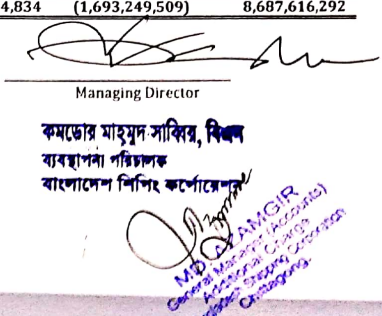 4,834 (1,693,249,509) 8,687,616,292
Managing Director
কমডোর মাহমুদ সাব্বির, বিএন
ব্যবস্থাপনা পরিচালক
বাংলাদেশ শিপিং কর্পোরেশন
MD. AZAMGIR
General Manager (Accounts)
Additional Charge
Shipping Corporation
Chittagong.